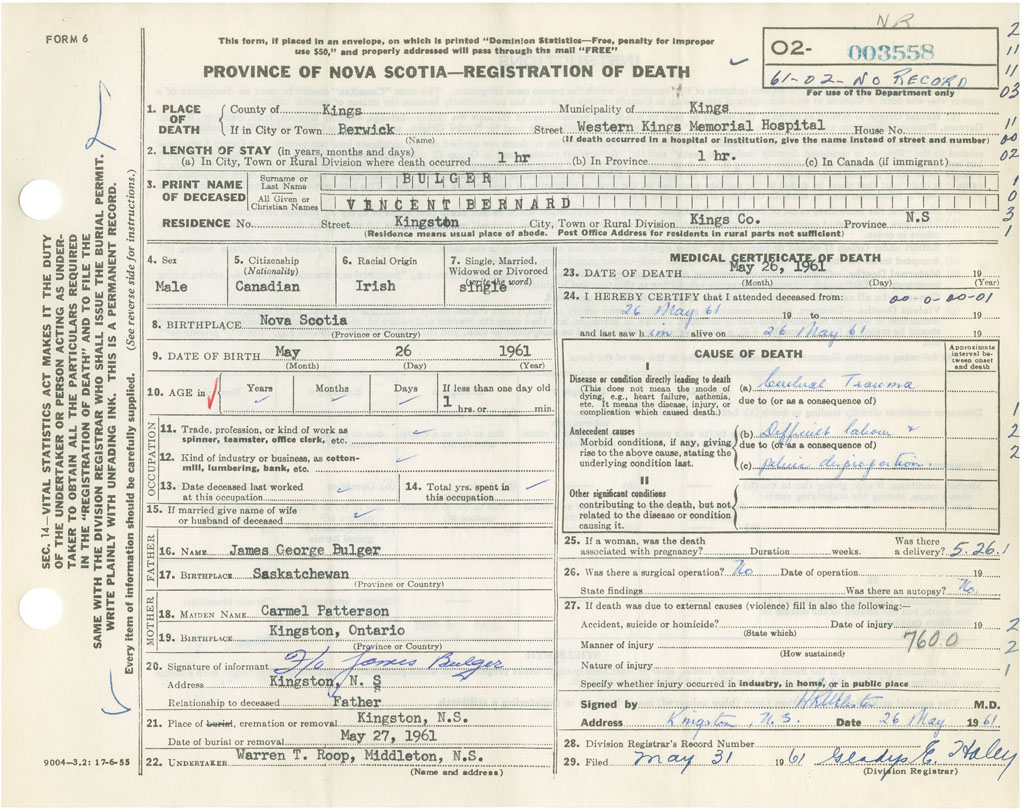 FORM 6
NR
This form, if placed in an envelope, on which is printed "Dominion Statistics—Free, penalty for improper
use $50," and properly addressed will pass through the mail "FREE"
PROVINCE OF NOVA SCOTIA—REGISTRATION OF DEATH
02- 003558
61-02-No RECORD
For use of the Department only
2
11
11
03
1. PLACE OF DEATH
County of Kings Municipality of Kings
If in City or Town Berwick Street Western Kings Memorial Hospital House No.
(Name) (If death occurred in a hospital or institution, give the name instead of street and number)
11
00
02
2. LENGTH OF STAY (in years, months and days)
(a) In City, Town or Rural Division where death occurred 1 hr (b) In Province 1 hr. (c) In Canada (if immigrant)
3. PRINT NAME OF DECEASED
Surname or Last Name BULGER
All Given or Christian Names VINCENT BERNARD
RESIDENCE No. Street Kingston City, Town or Rural Division Kings Co. Province N.S
(Residence means usual place of abode. Post Office Address for residents in rural parts not sufficient)
1
0
3
1
4. Sex
Male
5. Citizenship
(Nationality)
Canadian
6. Racial Origin
Irish
7. Single, Married,
Widowed or Divorced
(write the word)
single
8. BIRTHPLACE Nova Scotia
(Province or Country)
9. DATE OF BIRTH May 26 1961
(Month) (Day) (Year)
10. AGE in Years Months Days If less than one day old
1 hrs. or min.
OCCUPATION
11. Trade, profession, or kind of work as
spinner, teamster, office clerk, etc.
12. Kind of industry or business, as cotton-
mill, lumbering, bank, etc.
13. Date deceased last worked
at this occupation
14. Total yrs. spent in
this occupation
15. If married give name of wife
or husband of deceased
FATHER
16. NAME James George Bulger
17. BIRTHPLACE Saskatchewan
(Province or Country)
MOTHER
18. MAIDEN NAME Carmel Patterson
19. BIRTHPLACE Kingston, Ontario
(Province or Country)
20. Signature of informant F/o James Bulger
Address Kingston, N. S
Relationship to deceased Father
21. Place of burial, cremation or removal Kingston, N.S.
Date of burial or removal May 27, 1961
22. UNDERTAKER Warren T. Roop, Middleton, N.S.
(Name and address)
MEDICAL CERTIFICATE OF DEATH
23. DATE OF DEATH May 26, 1961 19
(Month) (Day) (Year)
24. I HEREBY CERTIFY that I attended deceased from: 00-0-00-01
26 May 61 19 to 19
and last saw him alive on 26 May 61 19
CAUSE OF DEATH
Approximate
interval be-
tween onset
and death
I
Disease or condition directly leading to death
(This does not mean the mode of
dying, e.g., heart failure, asthenia,
etc. It means the disease, injury, or
complication which caused death.)
(a) Cerebral Trauma
due to (or as a consequence of)
Antecedent causes
Morbid conditions, if any, giving
rise to the above cause, stating the
underlying condition last.
(b) Difficult labour +
due to (or as a consequence of)
(c) pelvic disproportion
II
Other significant conditions
contributing to the death, but not
related to the disease or condition
causing it.
1
2
2
25. If a woman, was the death
associated with pregnancy? Duration weeks. Was there
a delivery? 5.26.1
26. Was there a surgical operation? No Date of operation 19
State findings Was there an autopsy? No.
27. If death was due to external causes (violence) fill in also the following:—
Accident, suicide or homicide? Date of injury 19
(State which)
Manner of injury 760.0
(How sustained)
Nature of injury
Specify whether injury occurred in industry, in home, or in public place
2
2
1
Signed by M.D.
Address Kingston, N.S. Date 26 May 1961
28. Division Registrar's Record Number
29. Filed May 31 1961 Gladys E. Haley
(Division Registrar)
SEC. 14—VITAL STATISTICS ACT MAKES IT THE DUTY
OF THE UNDERTAKER OR PERSON ACTING AS UNDER-
TAKER TO OBTAIN ALL THE PARTICULARS REQUIRED
IN THE "REGISTRATION OF DEATH" AND TO FILE THE
SAME WITH THE DIVISION REGISTRAR WHO SHALL ISSUE THE BURIAL PERMIT.
WRITE PLAINLY WITH UNFADING INK. THIS IS A PERMANENT RECORD.
Every item of information should be carefully supplied. (See reverse side for instructions.)
9004-3.2: 17-6-55